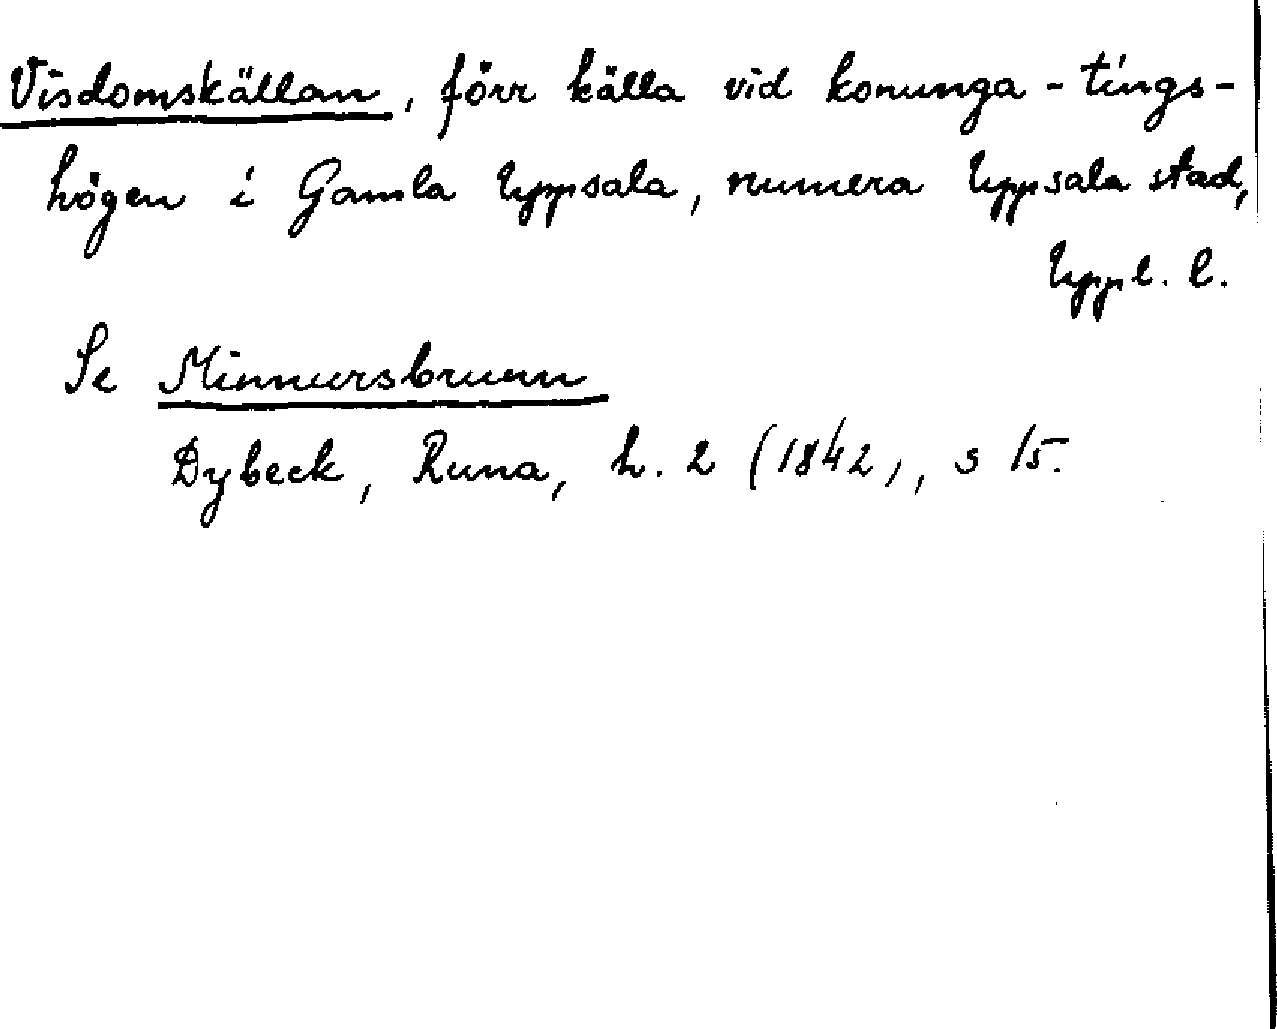 Visdomskällan, förr källa vid konunga-tings-
högen i Gamla Uppsala, numera Uppsala stad,
Uppl. l.
Se Mimmersbrunn
Dybeck, Runa, h. 2 (1842), s 15.